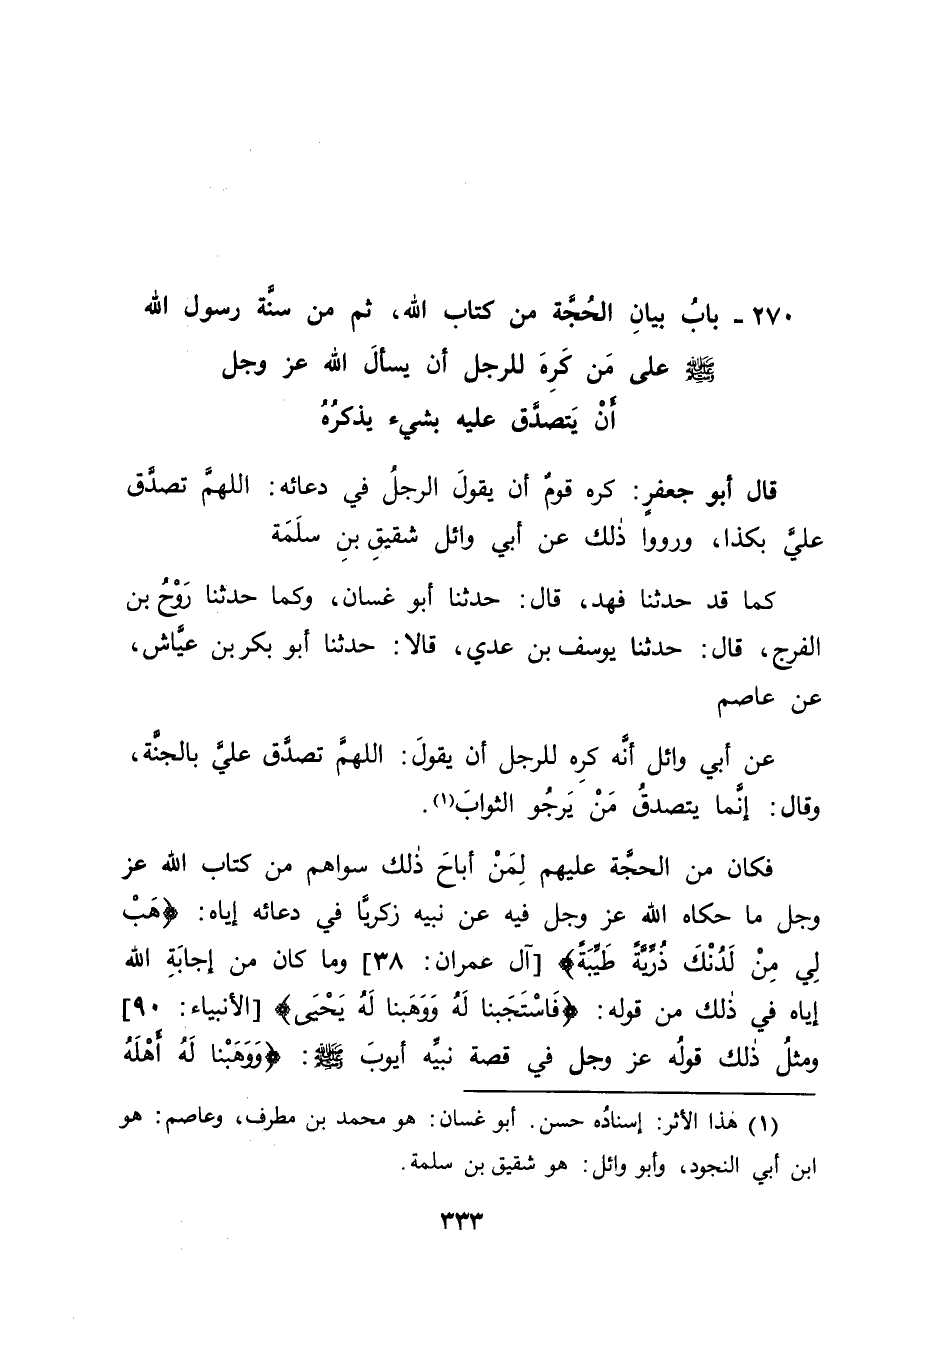 ٢٧٠ - بابُ بيانِ الحُجَّة من كتاب الله، ثم من سنَّة رسول الله
ﷺ على مَن كَرِهَ للرجل أن يسألَ الله عز وجل
أَنْ يَتصدَّق عليه بشيء يذكرُهُ
قال أبو جعفرٍ: كره قومٌ أن يقولَ الرجلُ في دعائه: اللهمَّ تصدَّق
عليَّ بكذا، ورووا ذٰلك عن أبي وائل شقيقِ بنِ سلَمَة
كما قد حدثنا فهد، قال: حدثنا أبو غسان، وكما حدثنا رَوْحُ بن
الفرج، قال: حدثنا يوسف بن عدي، قالا: حدثنا أبو بكر بن عيَّاش،
عن عاصم
عن أبي وائل أنَّه كرِه للرجل أن يقولَ: اللهمَّ تصدَّق عليَّ بالجنَّة،
وقال: إنَّما يتصدقُ مَنْ يَرجُو الثوابَ(١).
فكان من الحجَّة عليهم لِمَنْ أباحَ ذٰلك سواهم من كتاب الله عز
وجل ما حكاه الله عز وجل فيه عن نبيه زكريَّا في دعائه إياه: ﴿هَبْ
لِي مِنْ لَدُنْكَ ذُرِّيَّةً طَيِّبَةً﴾ [آل عمران: ٣٨] وما كان من إجابَةِ الله
إياه في ذٰلك من قوله: ﴿فَاسْتَجَبنا لَهُ وَوَهَبنا لَهُ يَحْيَى﴾ [الأنبياء: ٩٠]
ومثلُ ذٰلك قولُه عز وجل في قصة نبيِّه أيوبَ ﷺ: ﴿وَوَهَبْنا لَهُ أَهْلَهُ
(١) هٰذا الأثر: إسنادُه حسن. أبو غسان: هو محمد بن مطرف، وعاصم: هو
ابن أبي النجود، وأبو وائل: هو شقيق بن سلمة.
٣٣٣